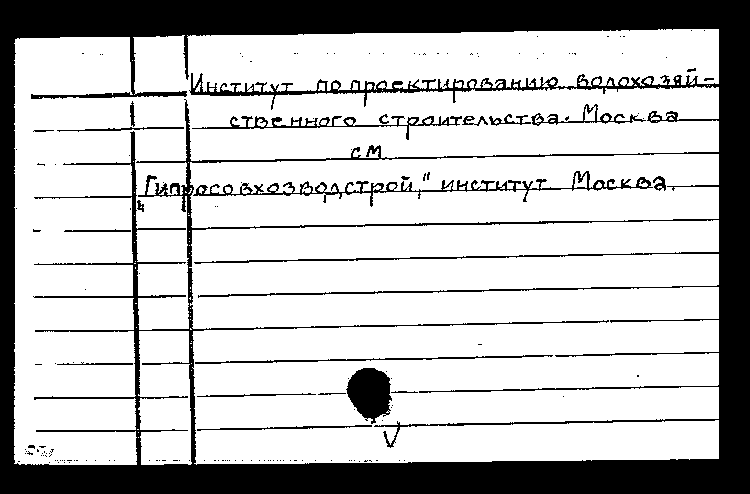 Институт по проектированию водохозяй-
ственного строительства. Москва
см
"Гипросовхозводстрой," институт Москва.
V